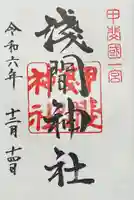 甲斐國一宮
淺間神社
甲斐
神社
令和六年
十二月十四日